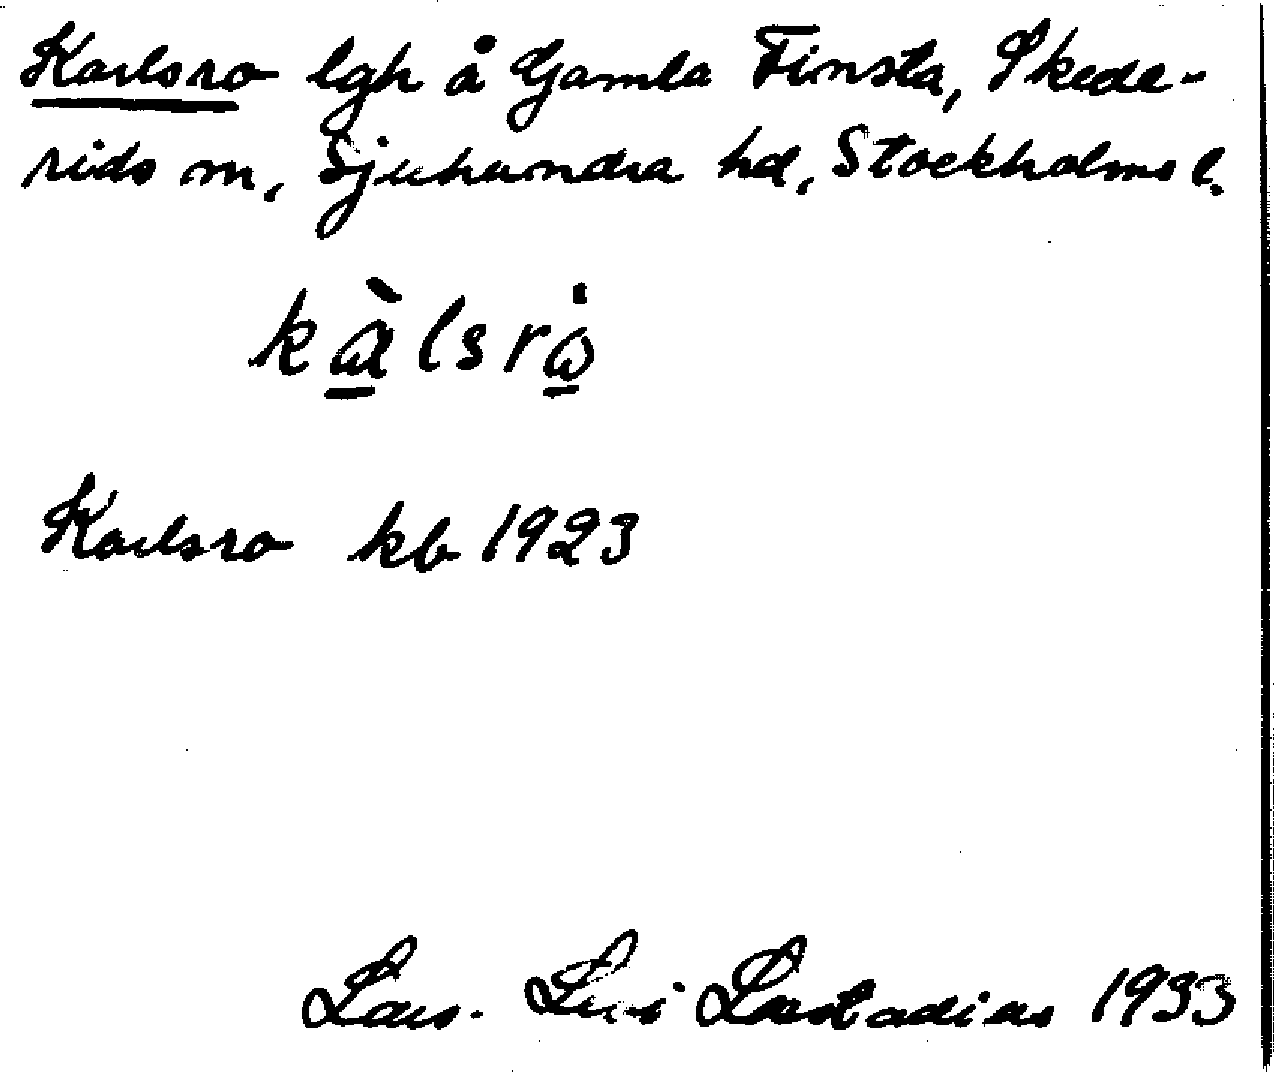 Karlsro lgh å Gamla Finsta, Skede-
rids sn, Sjuhundra hd, Stockholms l.
kàlsrò
Karlsro kb 1923
Lars. Levi Læstadius 1933